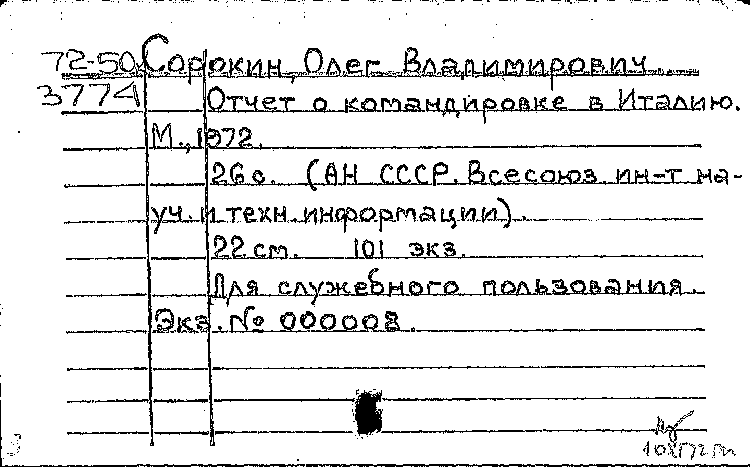 72-50 Сорокин, Олег Владимирович
3774 Отчет о командировке в Италию.
М., 1972.
26 с. (АН СССР. Всесоюз. ин-т на-
уч. и техн. информации).
22 см. 101 экз.
Для служебного пользования.
Экз. № 000008.